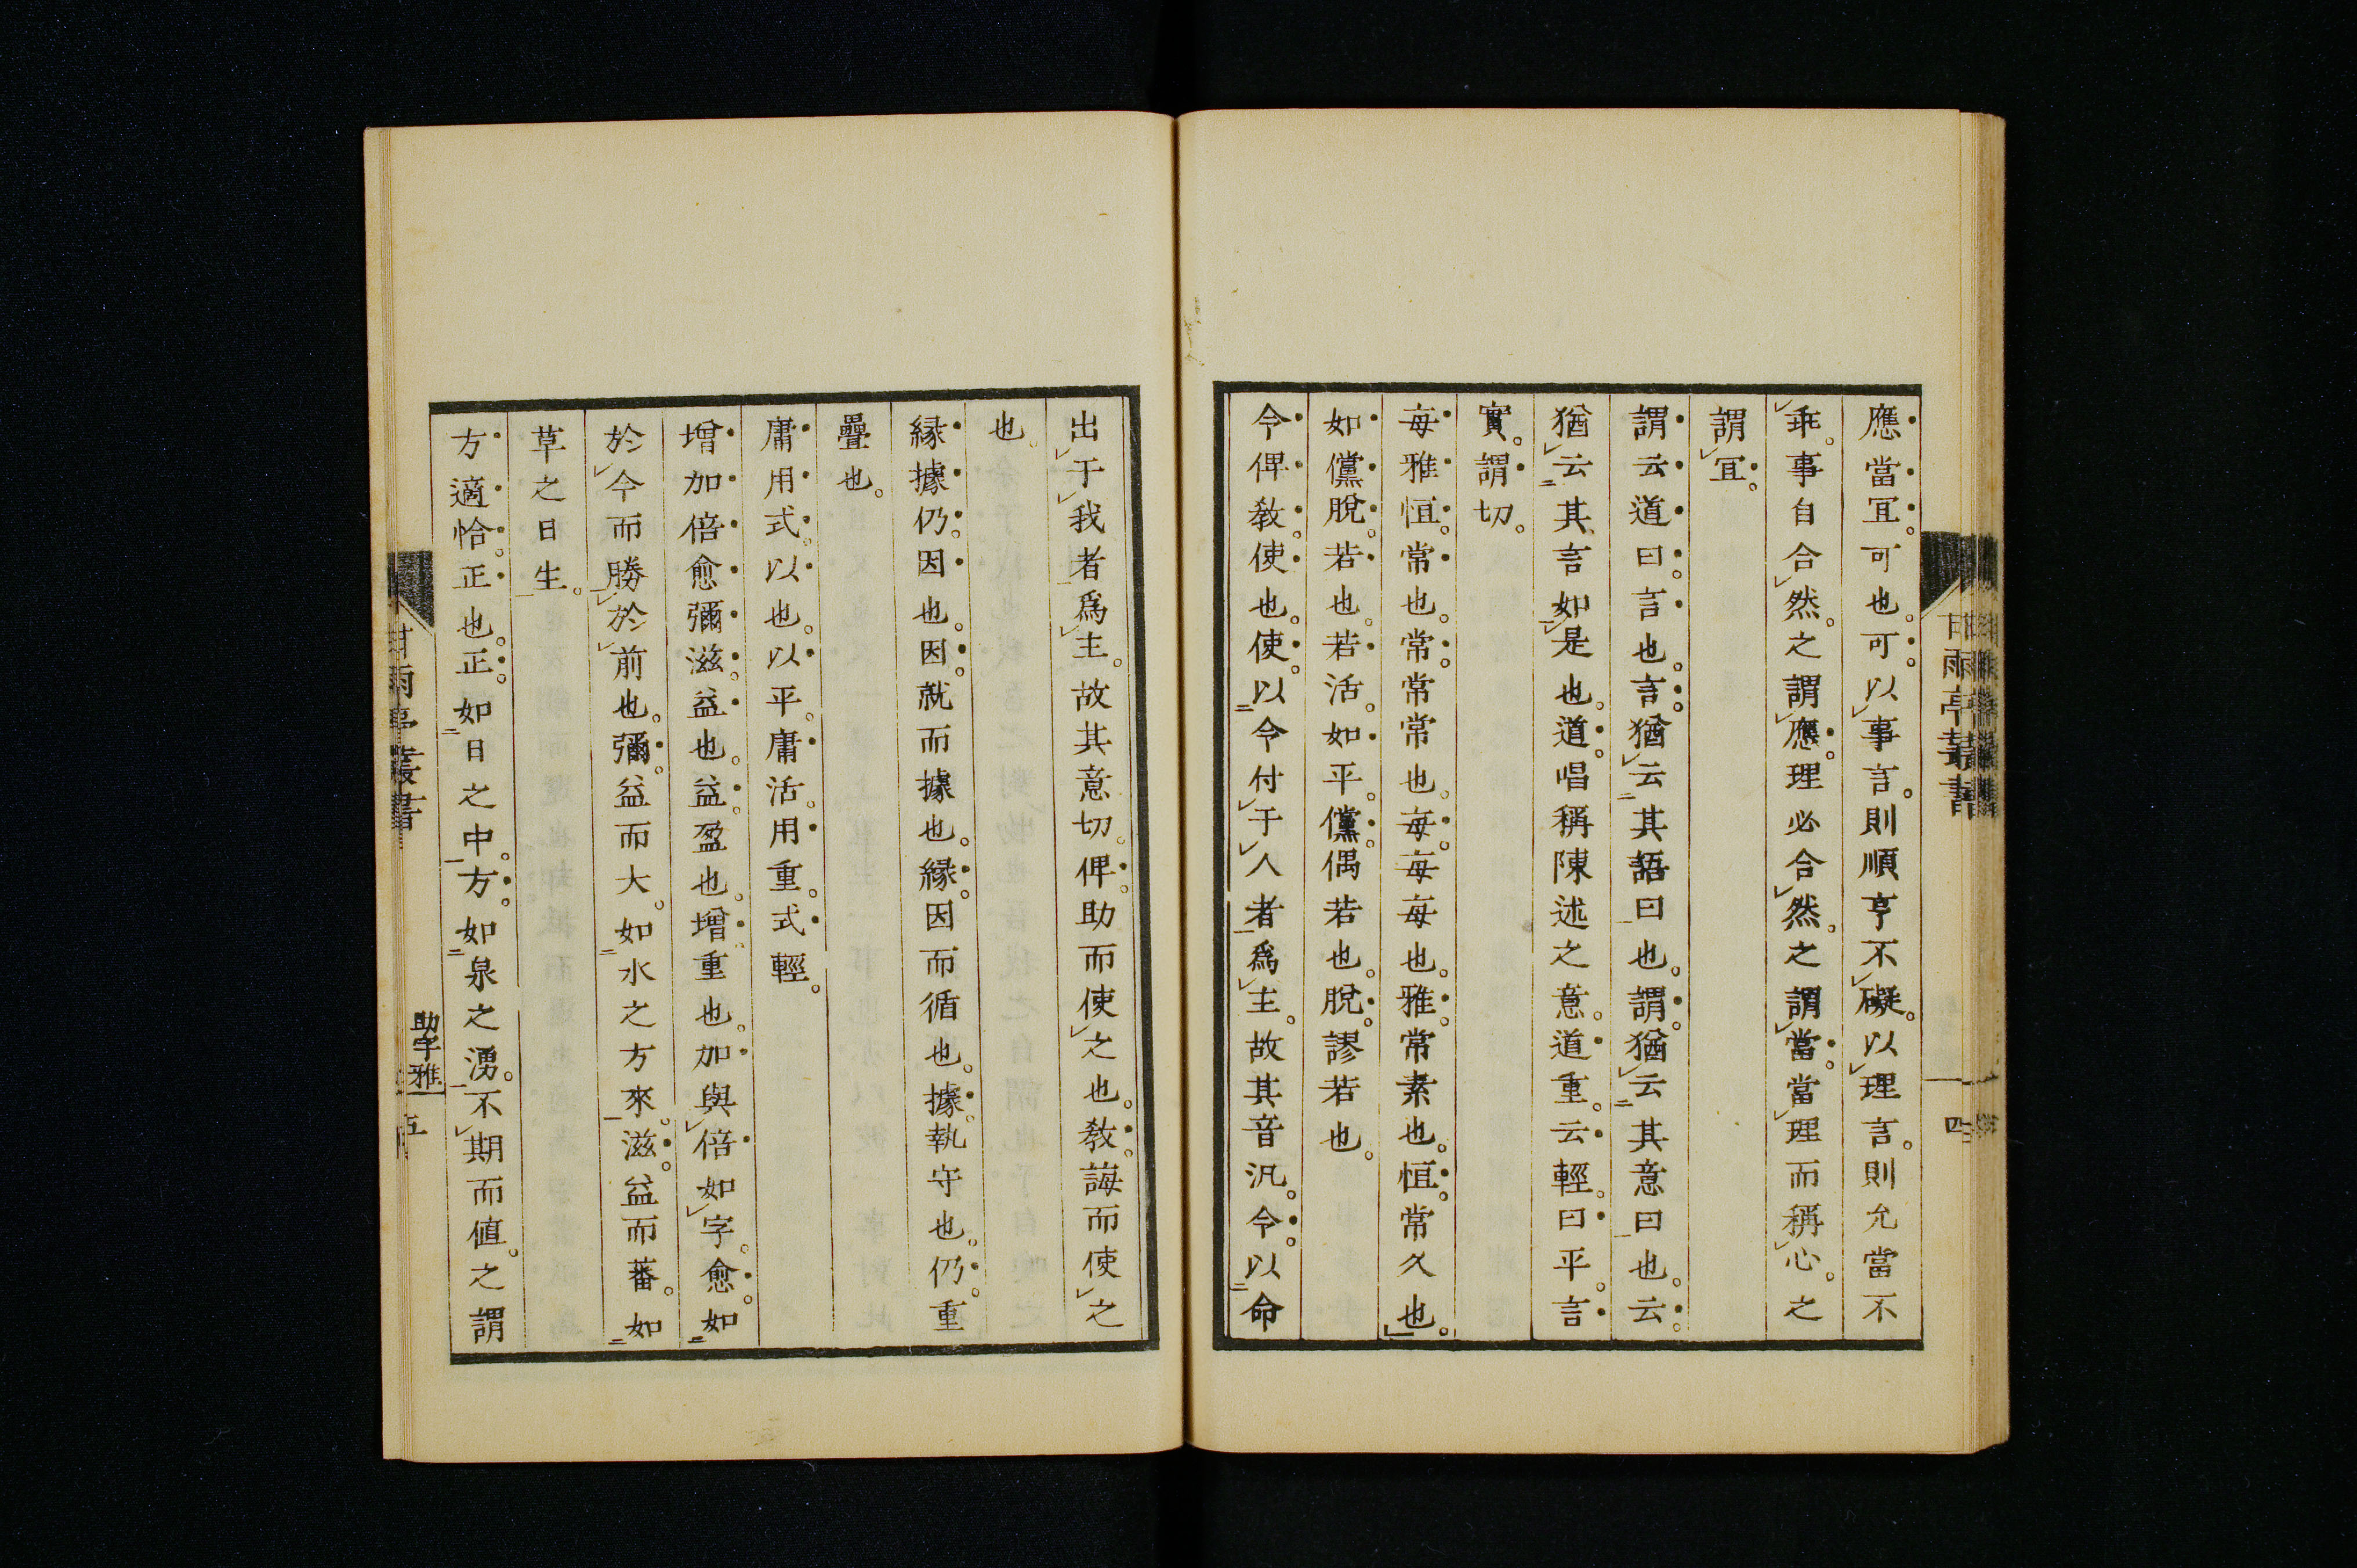 應當冝。可也。可。以事言。則順亨不礙。以理言。則允當不
乖。事自合然。之謂應。理必合然。之謂當。當理而稱心。之
謂冝。
謂云道曰。言也。言。猶云其語曰也。謂。猶云其意曰也。云。
猶云其言如是也。道。唱稱陳述之意。道重。云輕。曰平。言
實。謂切。
每雅恒。常也。常。常常也。每。每每也。雅。常素也。恒。常久也。
如儻脫。若也。若活。如平。儻。偶若也。脫。謬若也。
令俾敎。使也。使。以令付于人者爲主。故其音汎。令。以命
甘雨亭叢書
四
出于我者爲主。故其意切。俾。助而使之也。敎。誨而使之
也。
緣據仍。因也。因。就而據也。緣。因而循也。據。執守也。仍。重
疊也。
庸用式。以也。以平。庸活。用重。式輕。
增加倍愈彌滋。益也。益。盈也。增。重也。加與倍如字。愈。如
於今而勝於前也。彌。益而大。如水之方來。滋。益而蕃。如
草之日生。
方適恰。正也。正。如日之中。方。如泉之湧。不期而値。之謂
甘雨亭叢書
助字雅
五